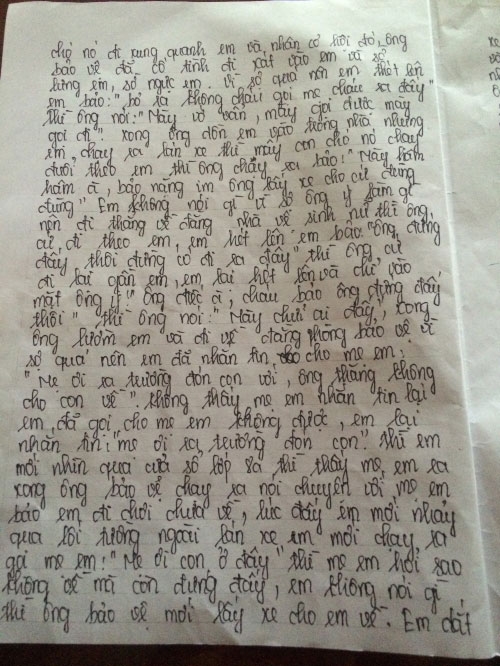 chó nó đi xung quanh em và nhân cơ hội đó, ông
bảo vệ đã cố tình đi sát vào em và sờ
lưng em, sờ ngực em. Vì sợ quá nên em thét lên
em bảo: "bỏ ra không cháu gọi mẹ cháu ra đấy"
thì ông nói: "Mày vớ vẩn, mày gọi được mày
gọi đi". xong ông dồn em vào trong nhà nhưng
em chạy ra lán xe thì mấy con chó nó chạy
đuổi theo em thì ông chạy ra bảo: "Mày hâm
hâm à, bảo nằng im ông lấy xe cho cứ đứng
đứng" Em không nói gì vì sợ ông ý làm gì
nên đi thẳng về đằng nhà vệ sinh nữ thì ông
cứ đi theo em, em hét lên em bảo "ông đứng
đấy thôi đừng có đi ra đây" thì ông cứ
đi lại gần em, em lại hét lên và chỉ vào
mặt ông ý: "ông điếc à, cháu bảo ông đứng đấy
thôi" thì ông nói: "Mày chửi ai đấy", xong
ông lườm em và đi về đằng phòng bảo vệ vì
sợ quá nên em đã nhắn tin cho mẹ em:
"Mẹ ơi ra trường đón con với, ông thắng không
cho con về". không thấy mẹ em nhắn tin lại
em đã gọi cho mẹ em không được, em lại
nhắn tin: "mẹ ơi ra trường đón con". thì em
mới nhìn qua cửa sổ lớp 8a thì thấy mẹ em ra
xong ông bảo vệ chạy ra nói chuyện với mẹ em
bảo em đi chơi chưa về, lúc đấy em mới nhảy
qua lối tường ngoài lán xe em mới chạy ra
gọi mẹ em: "Mẹ ơi con ở đây" thì mẹ em hỏi sao
không về mà còn đứng đấy, em không nói gì
thì ông bảo vệ mới lấy xe cho em về. Em dắt